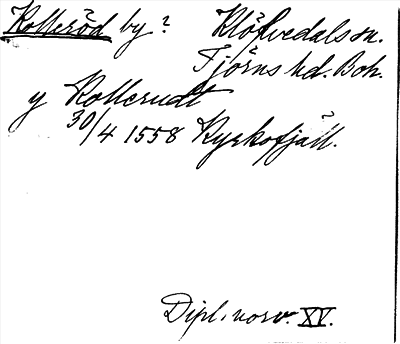 Kolleröd by? Klöfvedals sn.
Tjörns hd. Boh.
y Kollerudt
30/4 1558 Kyrkofjäll.
Dipl. norv. XV.